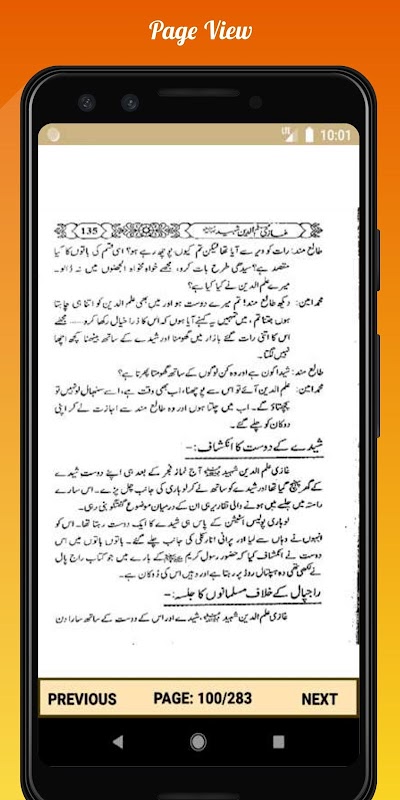 Page View
10:01
135 غازی علم الدین شہید
طالع مند: رات کو دیر سے آیا تھا لیکن تم کیوں پوچھ رہے ہو؟ اسی قسم کی باتوں کا کیا
مقصد ہے؟ سیدھی طرح بات کرو، مجھے خواہ مخواہ الجھنوں میں نہ ڈالو۔
میرے علم الدین نے کیا کیا ہے؟
محمد امین: دیکھ طالع مند! تم میرے دوست ہو اور میں بھی علم الدین کو اتنا ہی چاہتا
ہوں جتنا تم، میں تمہیں یہ کہنے آیا ہوں کہ اس کا ذرا خیال رکھا کرو— مجھے
اس کا اتنی رات گئے بازار میں گھومنا اور شیدے کے ساتھ بیٹھنا کچھ اچھا
نہیں لگتا۔
طالع مند: شیدا کون ہے اور وہ کن لوگوں کے ساتھ گھومتا پھرتا ہے؟
محمد امین: علم الدین آئے تو اس سے پوچھنا، اب بھی وقت ہے، اسے سنبھال لو نہیں تو
پچھتاؤ گے۔ اب میں چلتا ہوں اور وہ طالع مند سے اجازت لے کر اپنی
دوکان کو چلے گئے۔
شیدے کے دوست کا انکشاف:-
غازی علم الدین شہید آج نماز فجر کے بعد ہی اپنے دوست شیدے
کے گھر پہنچ گیا تھا اور شیدے کو ساتھ لے کر لوہاری کی جانب چل پڑے۔ اس سارے
راستہ میں جلسے میں ہونے والی تقاریر ہی ان کے درمیان موضوع گفتگو بنی رہی۔
لوہاری پولیس اسٹیشن کے پاس ہی شیدے کا ایک دوست رہتا تھا۔ اس کو
انہوں نے وہاں سے لیا اور پرانی انارکلی کی جانب چلے گئے۔ باتوں باتوں میں اس
دوست نے انکشاف کیا کہ حضور رسول کریم ﷺ کے بارے میں جو کتاب راج پال
نے لکھی تھی وہ ہسپتال روڈ پر رہتا ہے اور وہیں اس کی دوکان ہے۔
راجپال کے خلاف مسلمانوں کا جلسہ:-
غازی علم الدین شہید، شیدے اور اس کے دوست کے ساتھ سارا دن
PREVIOUS PAGE: 100/283 NEXT